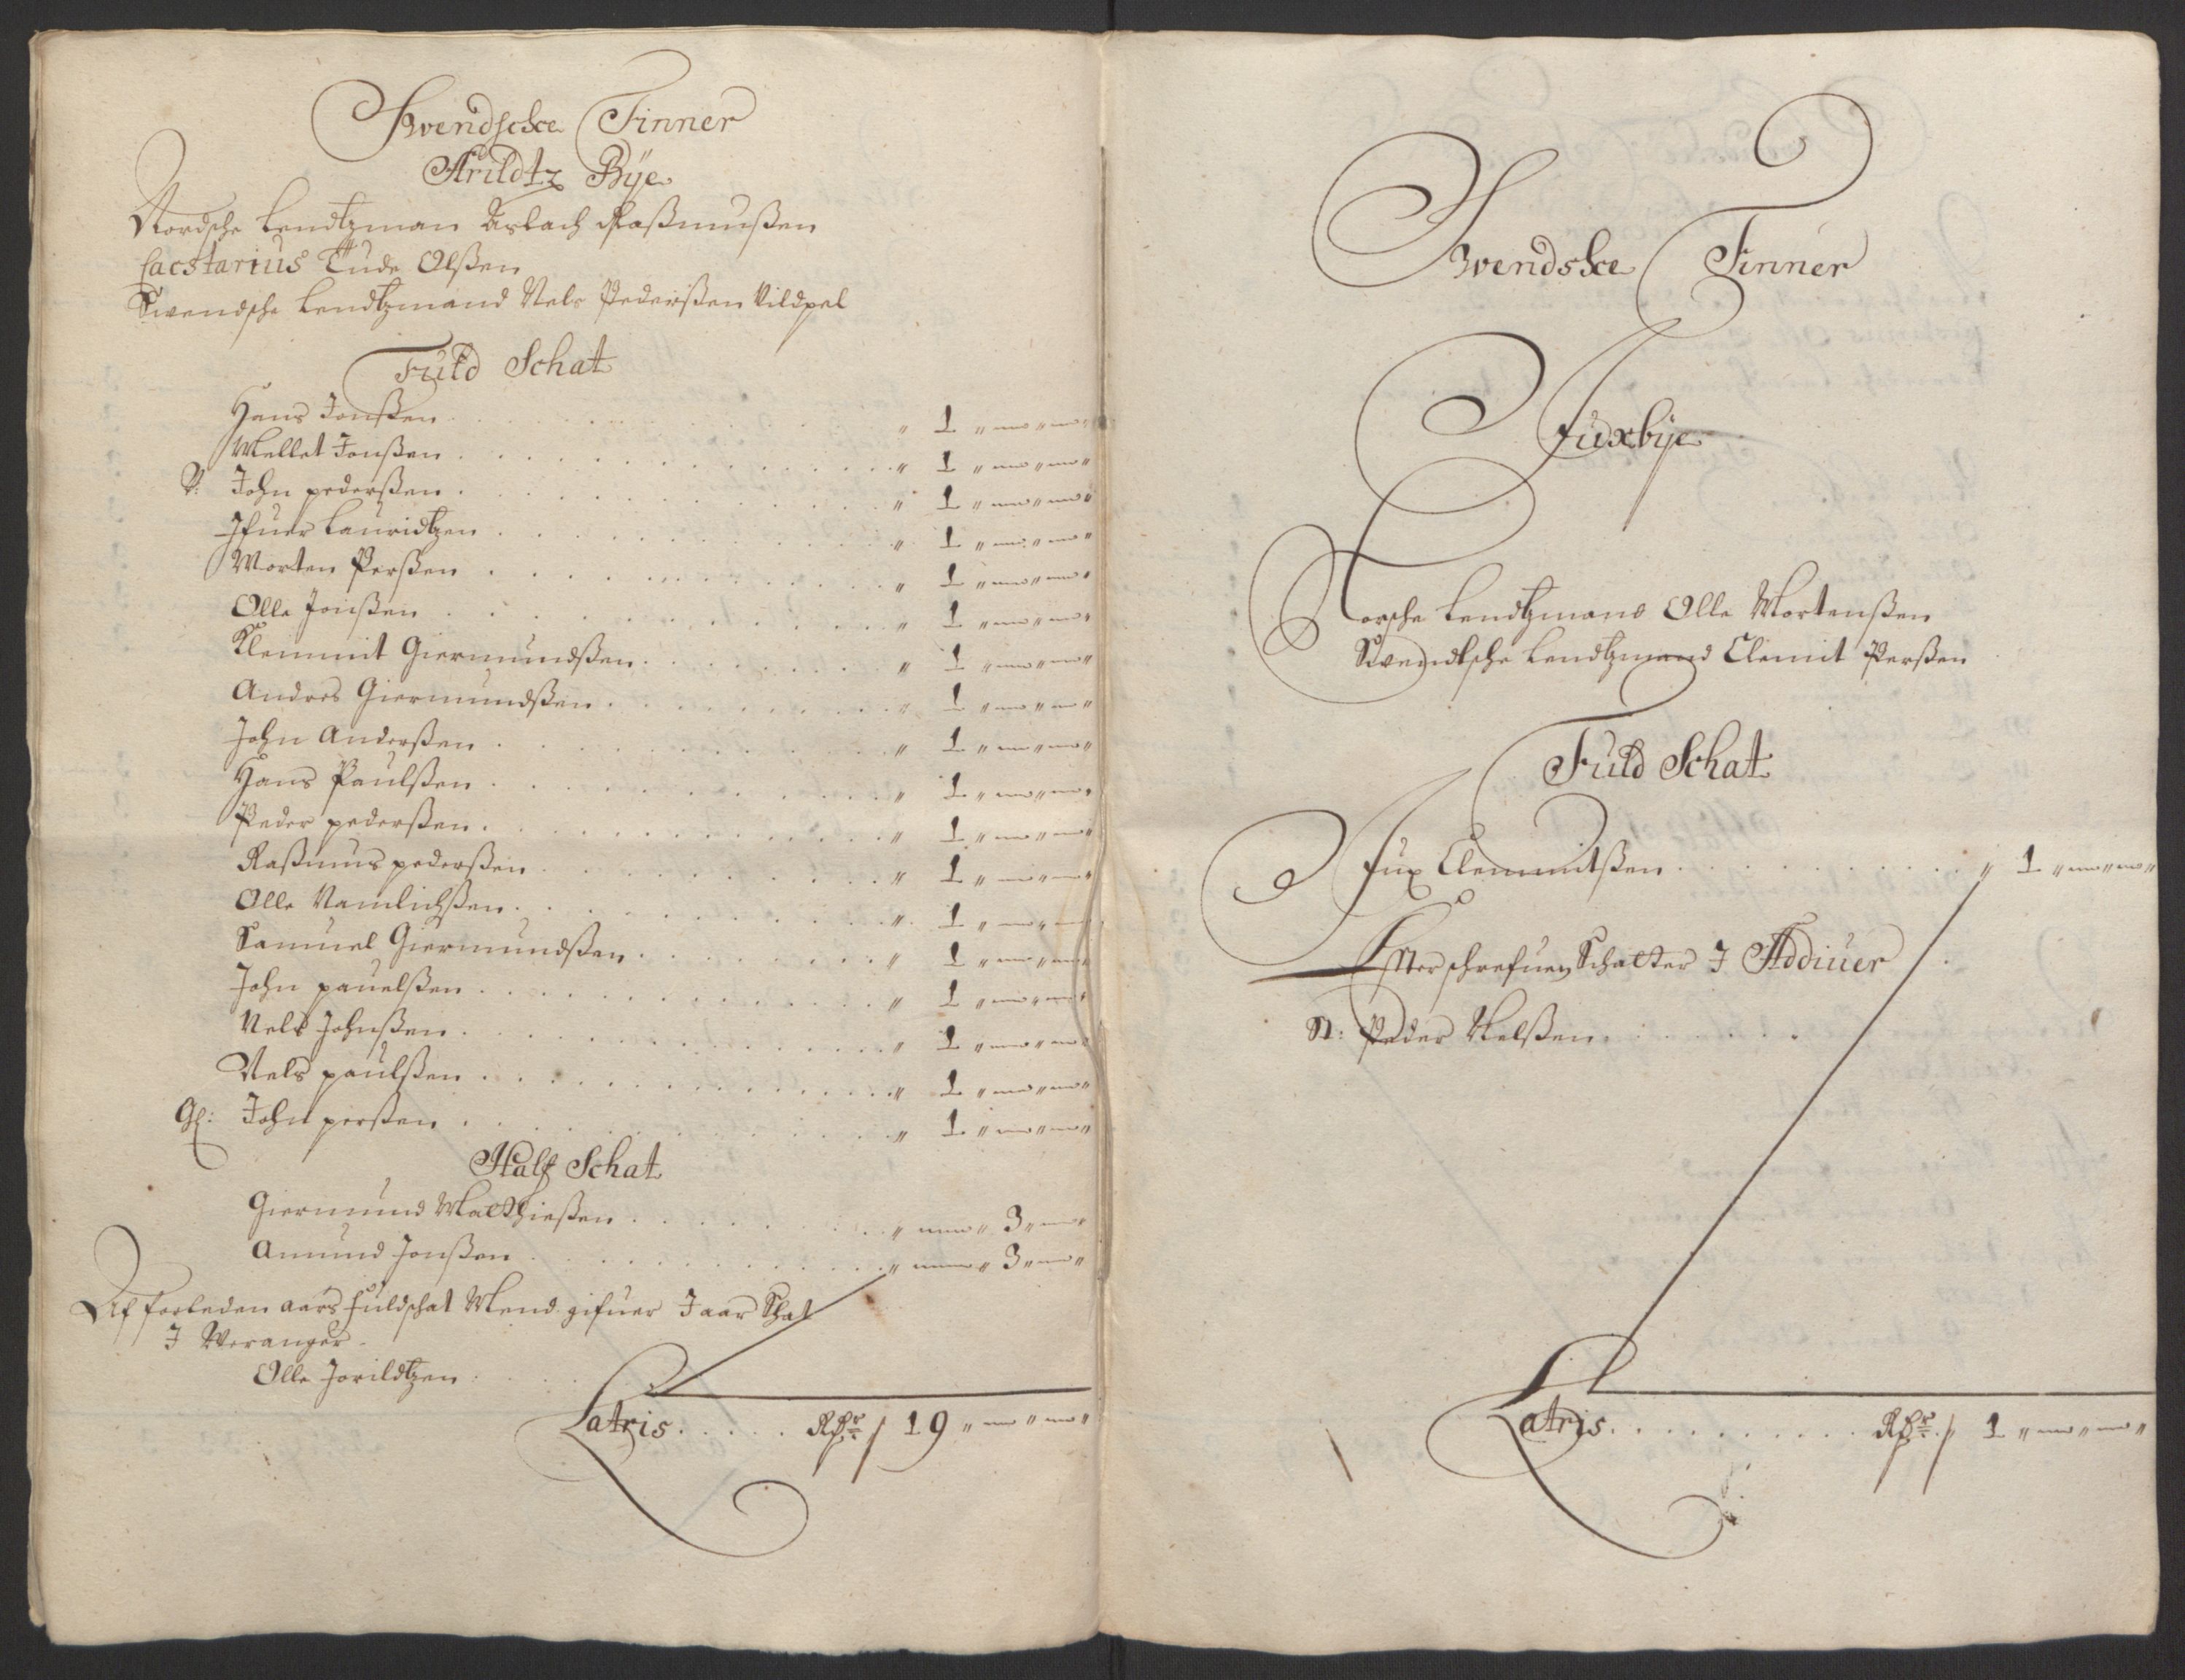 Svendscke Finner
Arildtz Bÿe
Nordsche Lendtzman Aslach Rasmußen
Cacstarius Tude Olßen
Svendsche Lendtzmand Nels Pederßen Vildpel
Fuld Schat
Hans Jonßen . . . " 1 " — " — "
Mellet Jonßen . . . " 1 " — " — "
N: John pederßen . . . " 1 " — " — "
Ifuer Lauridtzen . . . " 1 " — " — "
Morten Perßen . . . " 1 " — " — "
Olle Jonßen . . . " 1 " — " — "
Klemmit Giermundßen . . . " 1 " — " — "
Andres Giermundßen . . . " 1 " — " — "
John Anderßen . . . " 1 " — " — "
Hans Paulßen . . . " 1 " — " — "
Peder pederßen . . . " 1 " — " — "
Raßmus pederßen . . . " 1 " — " — "
Olle Namlichßen . . . " 1 " — " — "
Samuel Giermundßen . . . " 1 " — " — "
John pauelßen . . . " 1 " — " — "
Nels Johnßen . . . " 1 " — " — "
Nels paulßen . . . " 1 " — " — "
Gl: John perßen . . . " 1 " — " — "
Half Schat
Giermund Matthießen . . . " — " 3 " — "
Amund Jonßen . . . " — " 3 " — "
Af forleden aars fuldschat Mend gifuer J aar Schat
J Weranger
Olle Jorildtzen . . .
Latris . . . . . Rdr 19 " — " — "
Svendske Finner
Juxbÿe
Norsche Lendtzmand Olle Mortenßen
Svendtsche Lendtzmand Clemit Perßen
Fuld Schat
Jux Clemmitßen . . . " 1 " — " — "
Efterschrefuen Schatter J Addiuer
N: Peder Nelßen . . .
Latris . . . . . Rdr 1 " — " — "